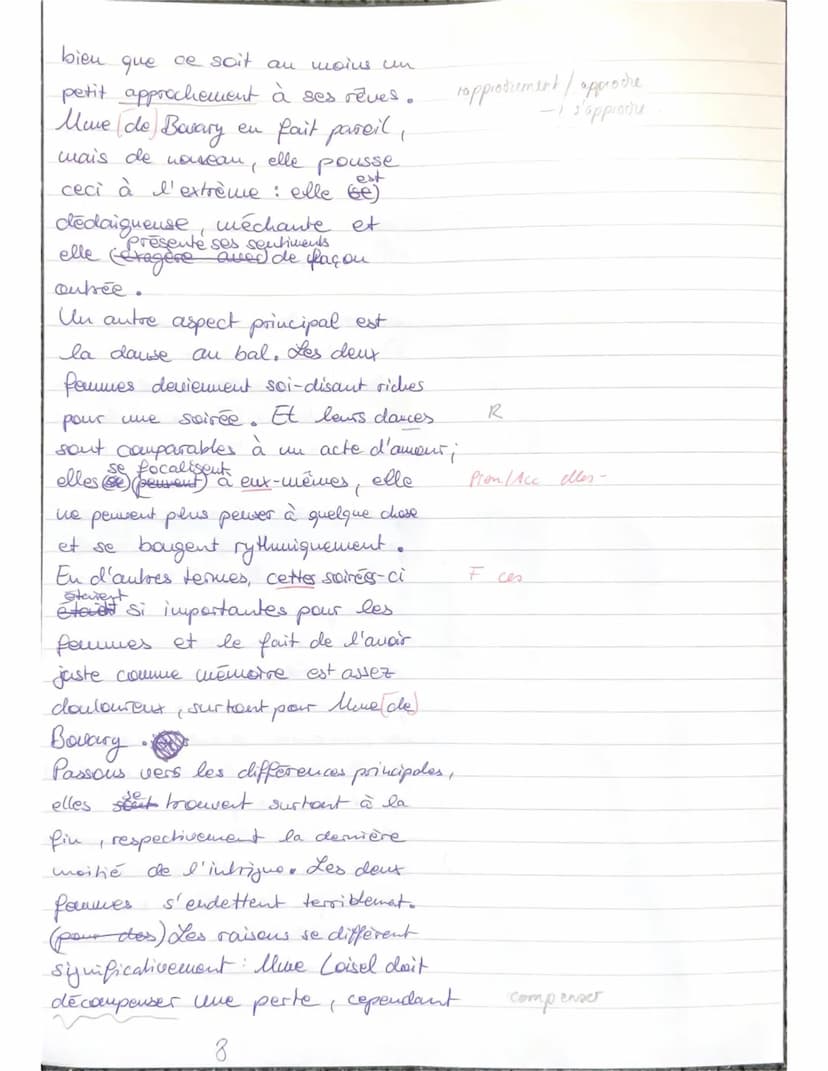 bien que ce soit au moins un
petit approchement à ses rêves. rapprochement / approche
→ s'approche
Mme [de] Bovary en fait pareil,
mais de nouveau, elle pousse
est
ceci à l'extrème : elle (se)
dédaigneuse, méchante et
présente ses sentiments
elle (exagère avec) de façon
outrée.
Un autre aspect principal est
la danse au bal. Les deux
femmes deviennent soi-disant riches
pour une soirée. Et leurs dances R
sont comparables à un acte d'amour;
se focalisent
elles (se) (peuvent) à eux-mêmes, elle Pron/Acc elles-
ne peuvent plus penser à quelque chose
et se bougent rythmiquement.
En d'autres termes, cettes soirées-ci F ces
étaient
était si importantes pour les
femmes et le fait de l'avoir
juste comme mémoire est assez
douloureux, surtout pour Mme [de]
Bovary.
Passons vers les différences principales,
se
elles sont trouvent surtout à la
fin, respectivement la dernière
moitié de l'intrigue. Les deux
femmes s'endettent terriblemat.
(pour des) Les raisons se diffèrent
significativement : Mme Loisel doit
décompenser une perte, cependant compenser
8